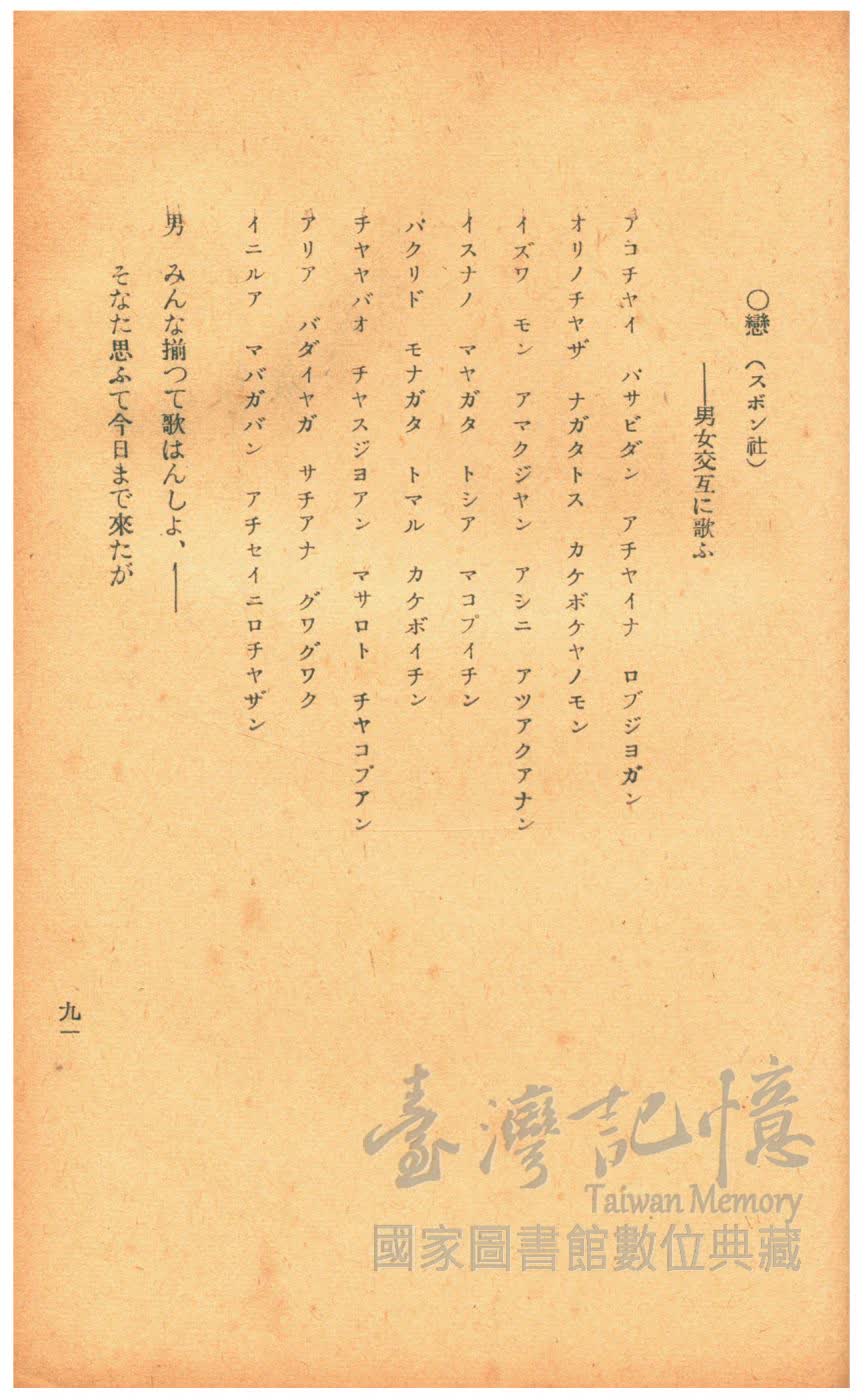 〇戀（スボン社）
――男女交互に歌ふ
アコチヤイ　パサビダン　アチヤイナ　ロブジヨガン
オリノチヤザ　ナガタトス　カケボケヤノモン
イズワ　モン　アマクジヤン　アシニ　アツアクアナン
イスナノ　マヤガタ　トシア　マコプイチン
パクリド　モナガタ　トマル　カケボイチン
チヤヤバオ　チヤスジヨアン　マサロト　チヤコブアン
アリア　バダイヤガ　サチアナ　グワグワク
イニルア　マバガバン　アチセイニロチヤザン
男　みんな揃つて歌はんしよ、――
そなた思ふて今日まで來たが
九一
臺灣記憶
Taiwan Memory
國家圖書館數位典藏